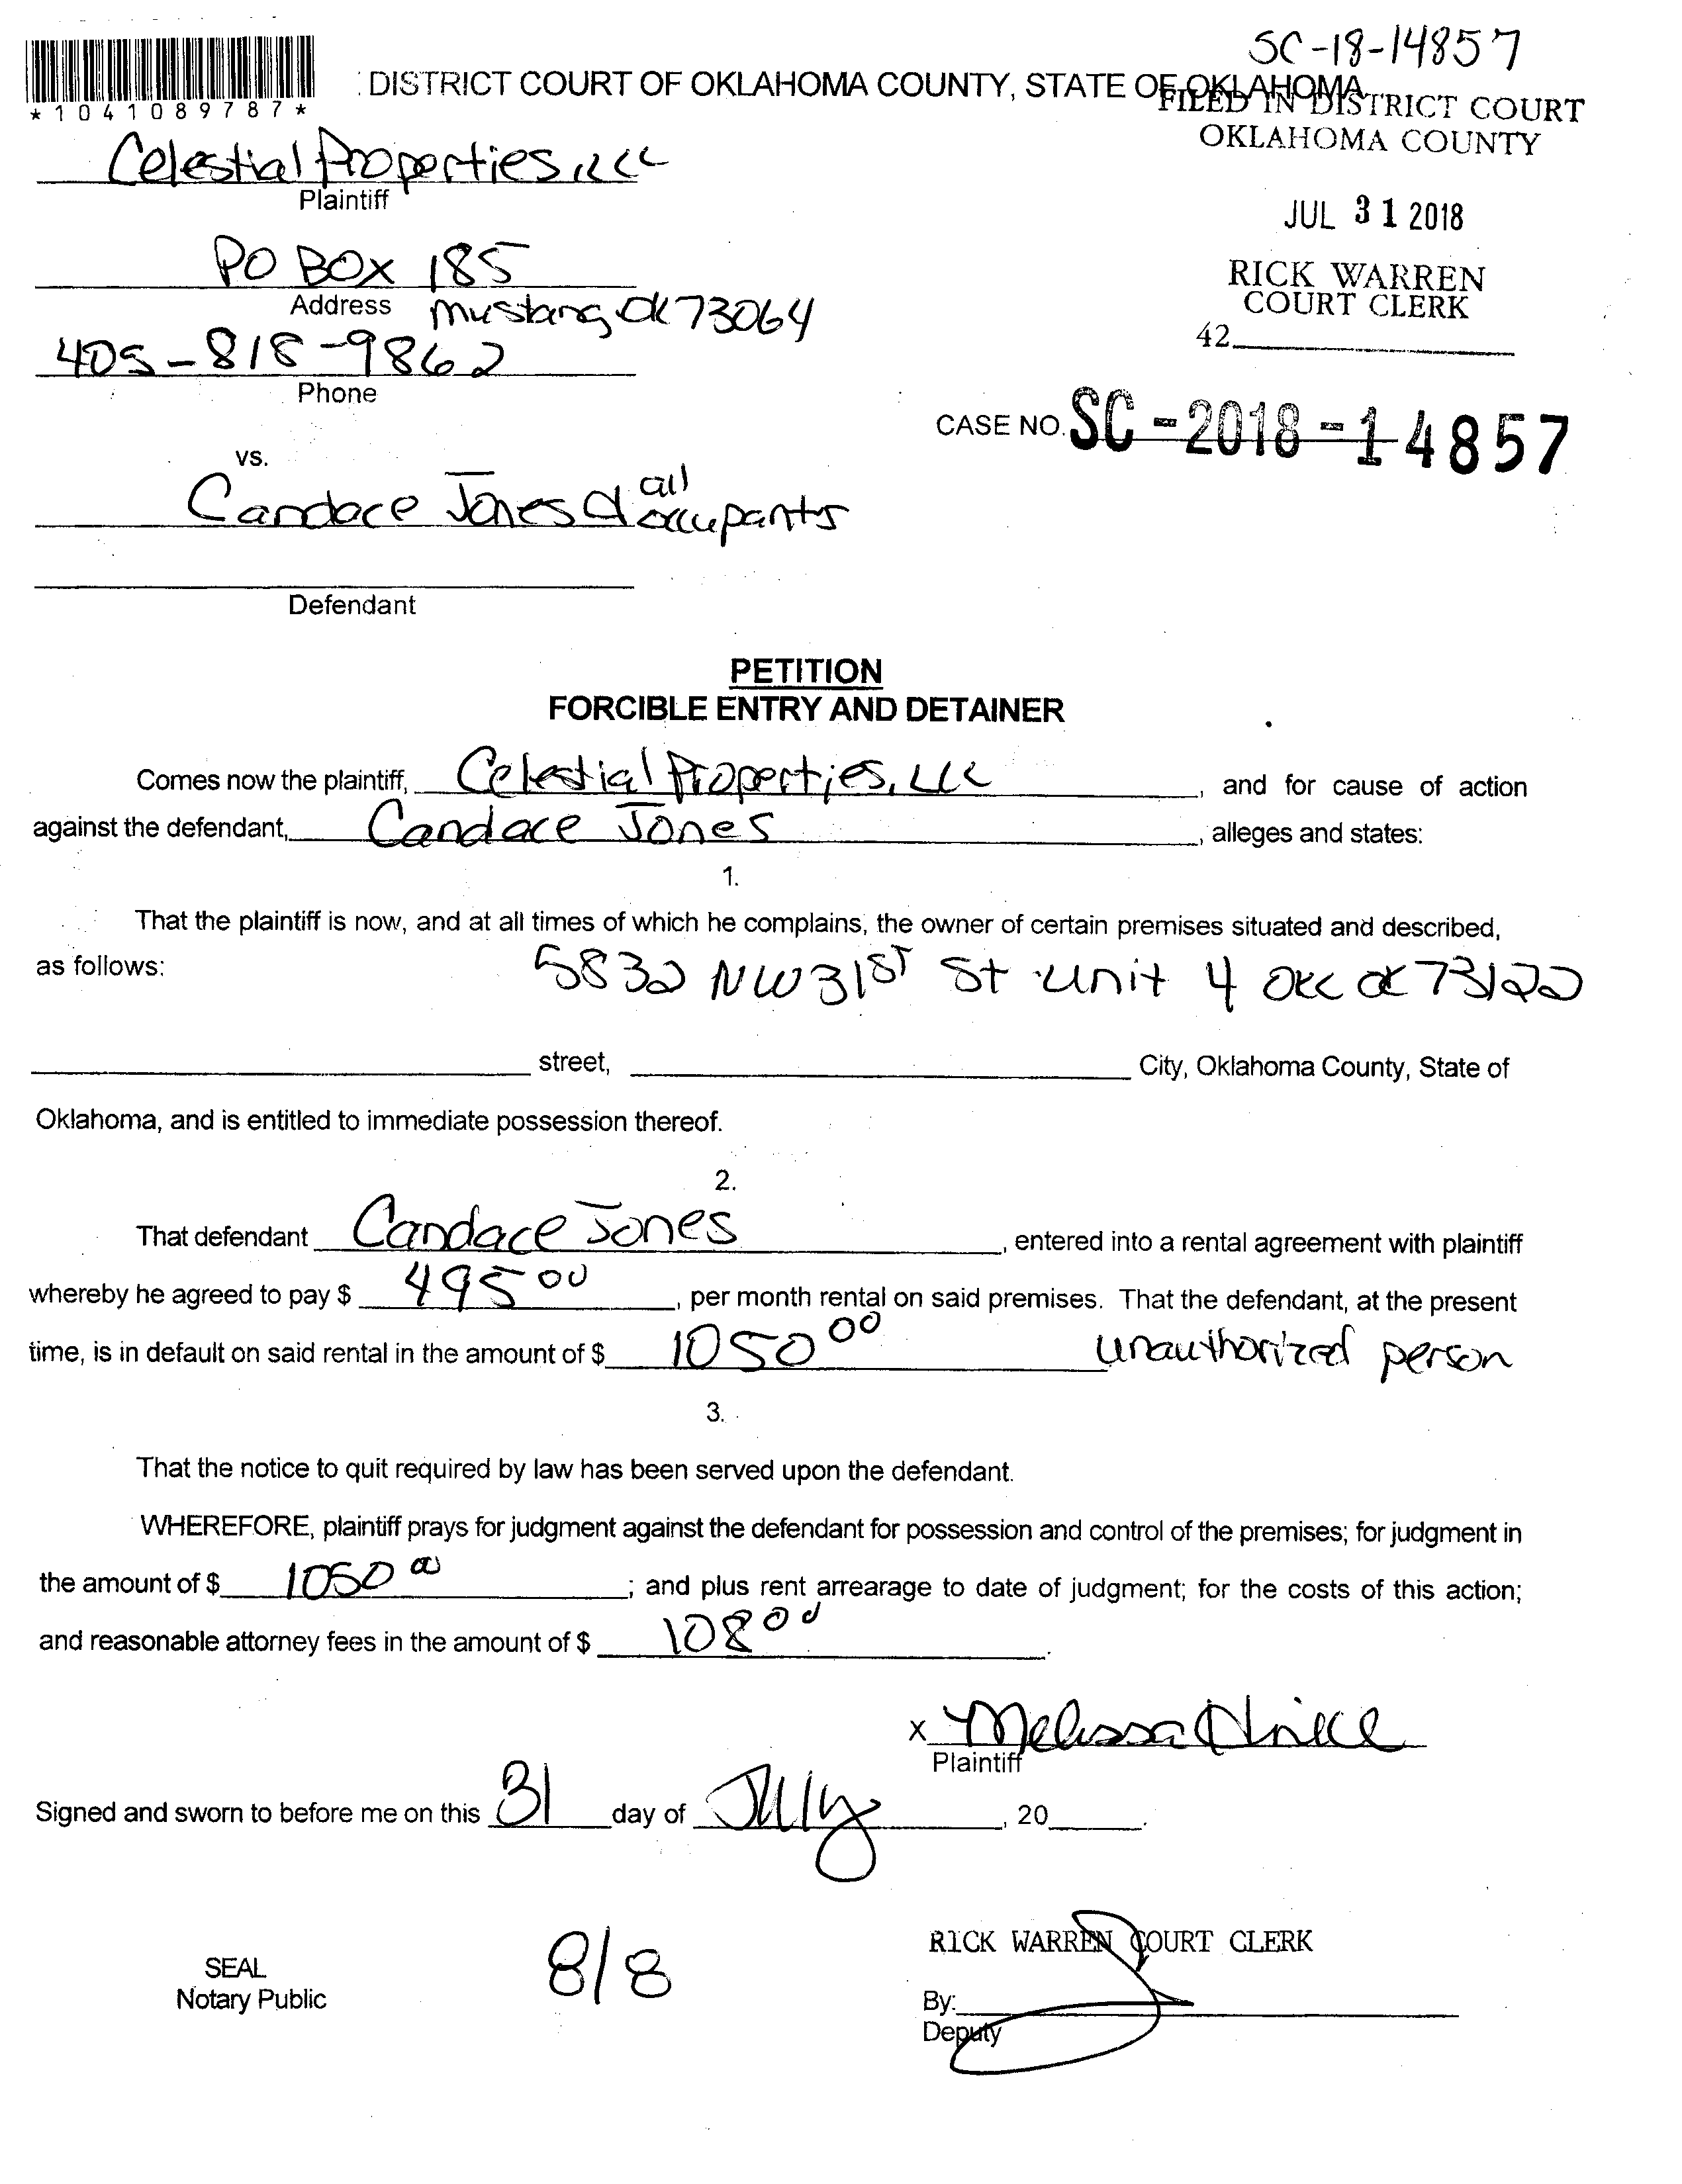 SC-18-14857
DISTRICT COURT OF OKLAHOMA COUNTY, STATE OF OKLAHOMA
*1041089787*
FILED IN DISTRICT COURT
OKLAHOMA COUNTY
Celestial Properties, LLC
Plaintiff
JUL 31 2018
PO BOX 185
Address
Mustang, OK 73064
RICK WARREN
COURT CLERK
42
405-818-9862
Phone
CASE NO. SC-2018-14857
vs.
Candace Jones & all occupants
Defendant
PETITION
FORCIBLE ENTRY AND DETAINER
Comes now the plaintiff, Celestial Properties, LLC, and for cause of action
against the defendant, Candace Jones, alleges and states:
1.
That the plaintiff is now, and at all times of which he complains, the owner of certain premises situated and described,
as follows: 5832 NW 31ST St Unit 4 OKC OK 73122
street, City, Oklahoma County, State of
Oklahoma, and is entitled to immediate possession thereof.
2.
That defendant Candace Jones, entered into a rental agreement with plaintiff
whereby he agreed to pay $ 495 00, per month rental on said premises. That the defendant, at the present
time, is in default on said rental in the amount of $ 1050 00 unauthorized person
3.
That the notice to quit required by law has been served upon the defendant.
WHEREFORE, plaintiff prays for judgment against the defendant for possession and control of the premises; for judgment in
the amount of $ 1050 00; and plus rent arrearage to date of judgment; for the costs of this action;
and reasonable attorney fees in the amount of $ 108 00.
x Melissa
Plaintiff
Signed and sworn to before me on this 31 day of July, 20 .
RICK WARREN COURT CLERK
SEAL
Notary Public
8/8
By:
Deputy